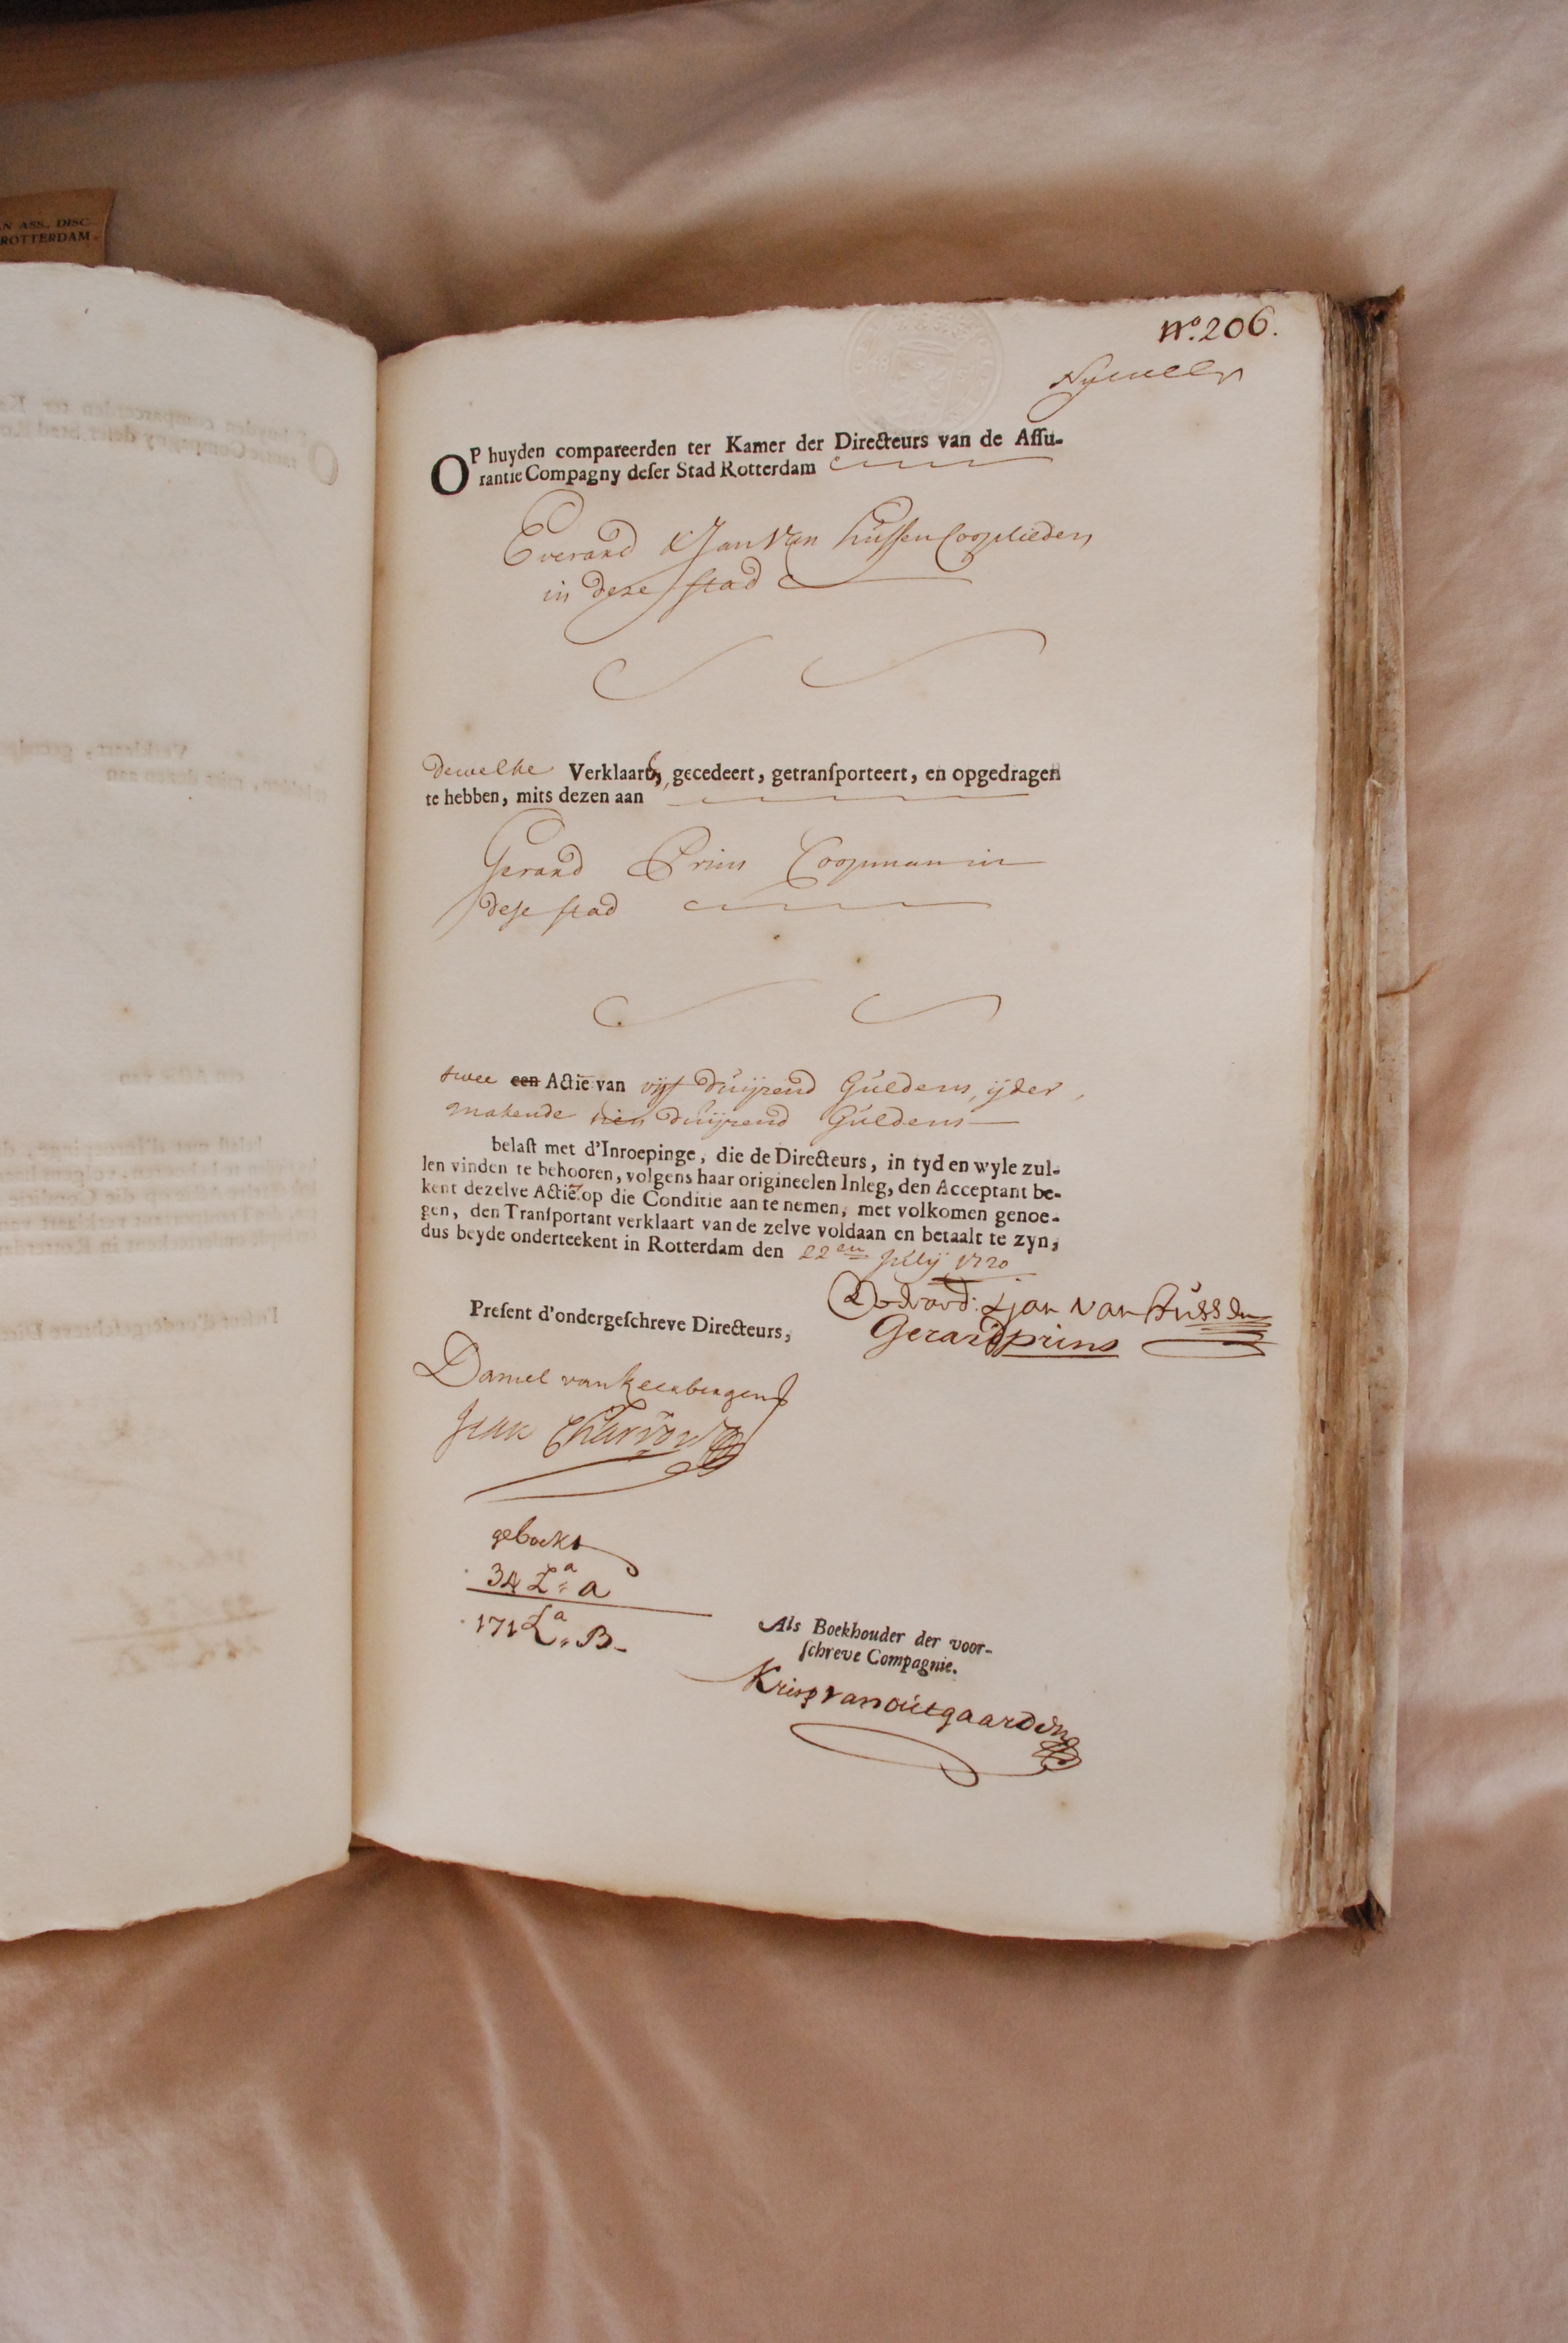 N ASS., DISC
ROTTERDAM
No. 206.
OP huyden compareerden ter Kamer der Directeurs van de Aſſu-
rantie Compagny deſer Stad Rotterdam
Everard & Jan Van Hussen Cooplieden
in deze stad
dewelke Verklaart, gecedeert, getranſporteert, en opgedragen
te hebben, mits dezen aan
Gerard Prins Coopman in
dese stad
twee een Actie van vijf duijzend Guldens, ijder,
makende tien duijzend Guldens
belaſt met d'Inroepinge, die de Directeurs, in tyd en wyle zul-
len vinden te behooren, volgens haar origineelen Inleg, den Acceptant be-
kent dezelve Actie op die Conditie aan te nemen, met volkomen genoe-
gen, den Tranſportant verklaart van de zelve voldaan en betaalt te zyn,
dus beyde onderteekent in Rotterdam den 22en Julij 1720
Preſent d'ondergeſchreve Directeurs,
Everard: & jan van Hussen
Gerard prins
Daniel van
Jean
geboekt
34 La: a
171 La: B-
Als Boekhouder der voor-
ſchreve Compagnie.
Krisp van outgaarden